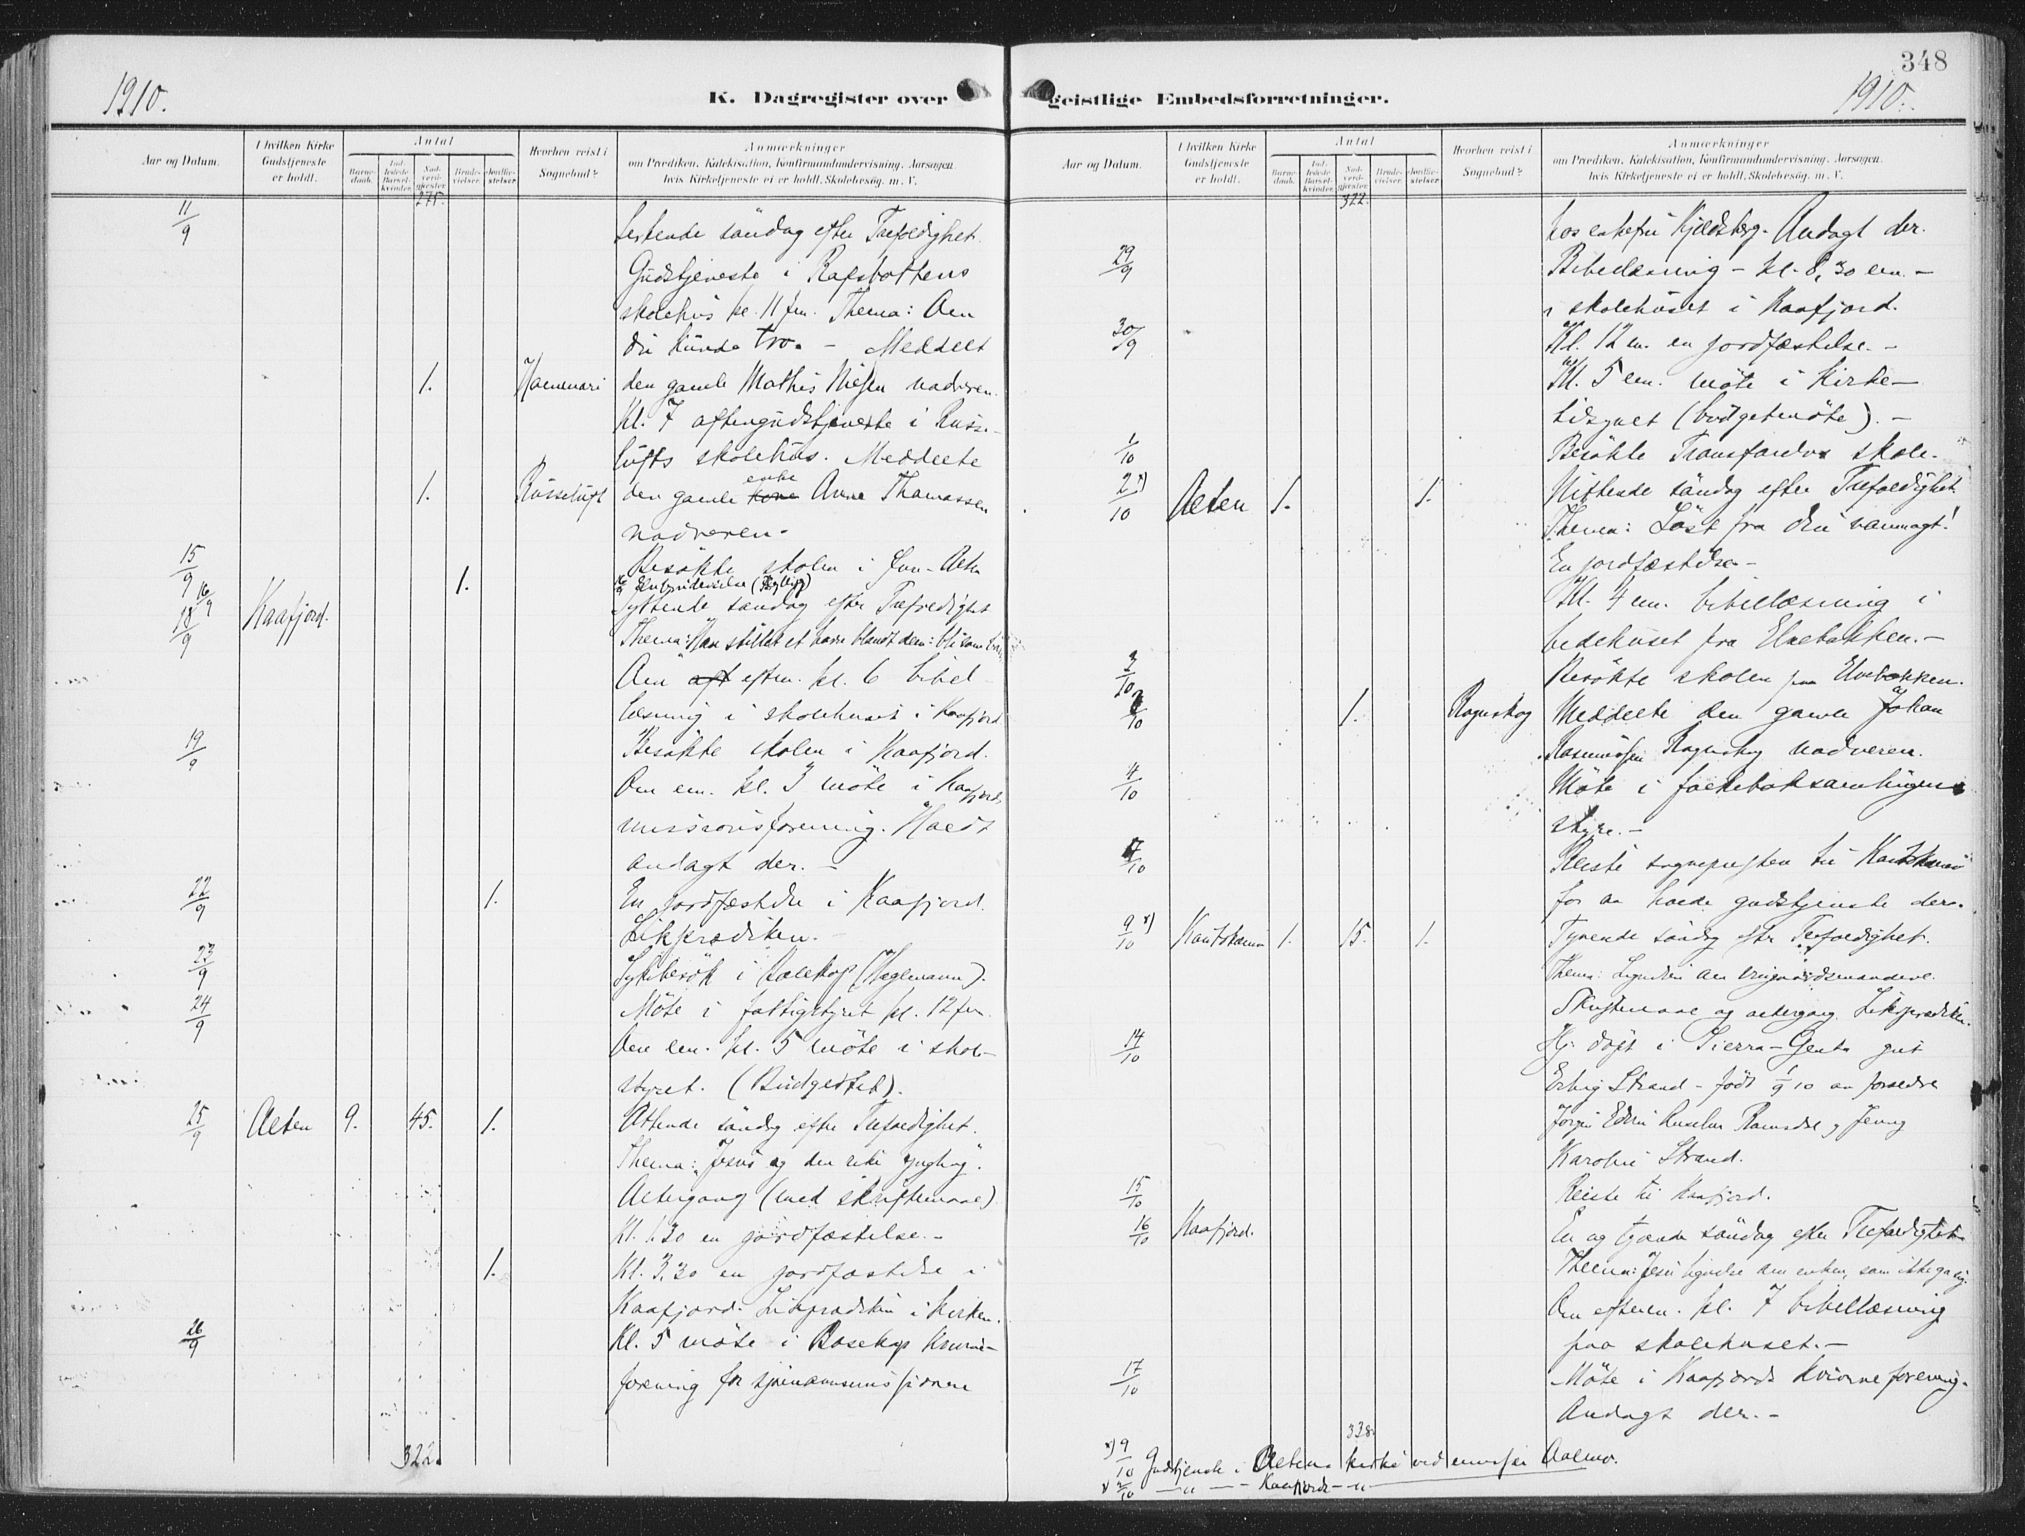 1910.
K. Dagregister over
Aar og Datum.
I hvilken Kirke Gudstjeneste er holdt.
Antal
Barnedaab.
Indledede Barselkvinder.
Nadverdgjester
Brudevielser.
Jordfæstelser
Hvorhen reist i Sognebud?
Anmærkninger
om Prædiken, Katekisation, Konfirmandundervisning, Aarsagen
hvis Kirketjeneste ei er holdt, Skolebesøg. m. V.
275.
11/9 søndag efter Trefoldighet.
Gudstjeneste i Rafsbottens
skolehus kl. 11 fm. Thema: Om
du kunde tro. – Meddelt
1. den gamle Mathis Nilsen nadveren.
Kl. 7 aftengudstjeneste i Russe-
lufts skolehus. Meddelte
enke
1. Russeluft den gamle kone Anne Thomassen
nadveren.
15/9 Besøkte skolen i
16/9 1.
18/9 Kaafjord. Syttende søndag efter Trefoldighet
Thema: Han stillet et barn blandt dem:
Om aft eftm. kl. 6 bibel-
læsning i skolehuset i Kaafjord
19/9 Besøkte skolen i Kaafjord.
Om em. kl. 3 möte i Kaafjords
missionsforening. Holdt
andagt der. –
22/9 1. En jordfæstelse i Kaafjord.
Likprædiken. –
23/9 Sykebesök i
24/9 Möte i fattigstyret kl. 12 fm.
Om em. kl. 5 möte i skole-
styret. (Budgettet).
25/9 Alten 9. 45. 1. Attende söndag efter Trefoldighet.
Thema: "Jesus og den rike yngling".
Altergang (med skriftemaal)
Kl. 1.30 en jordfæstelse. –
1. Kl. 3,30 en jordfæstelse i
Kaafjord. Likprædiken i kirken.
26/9 Kl. 5 möte i Bosekop kvinde-
forening for
322.
348
1910.
geistlige Embedsforretninger.
Aar og Datum.
I hvilken Kirke Gudstjeneste er holdt.
Antal
Barnedaab.
Indledede Barselkvinder.
Nadverdgjester
Brudevielser.
Jordfæstelser.
Hvorhen reist i Sognebud?
Anmærkninger
om Prædiken, Katekisation, Konfirmandundervisning, Aarsagen
hvis Kirketjeneste ei er holdt, Skolebesøg. m. V.
322.
hos enkefru Kjeldsberg. Andagt der.
29/9 Bibellæsning – kl. 8,30 em. –
i skolehuset i Kaafjord.
30/9 Kl. 12 m. en jordfæstelse. –
Kl. 5 em. möte i Kirke-
tilsynet (budgetmöte). –
1/10 Besökte Transfardal skole.
2/10 x) Alten 1. 1. Nittende söndag efter Trefoldighet
Thema: Löst fra din vanmagt!
En jordfæstelse –
Kl. 4 em. bibellæsning i
bedehuset paa Elvebakken. –
3/10 Besökte skolen paa Elvebakken.
/10 1. Rognskog Meddelte den gamle Johan
Rasmussen Rognskog nadveren.
4/10 Möte i folkeboksamlingens
styre. –
7/10 Reiste sognepresten til Kautokeino
for aa holde gudstjeneste der.
9/10 x) Kautokeino 1. 15. 1. Tyvende söndag efter Trefoldighet.
Thema: Lignelsen om vingaardsmændene.
Skriftemaal og altergang. Likprædiken.
14/10 Hj. döpt i gut
Erling Strand – född 1/9 10 av forældre
Karoline Strand.
15/10 Reiste til Kaafjord.
16/10 Kaafjord. En og tyvende söndag efter Trefoldighet
Thema: Jesu lignelse om enken, som ikke ga sig.
Om efterm. kl. 7 bibellæsning
paa skolehuset. –
17/10 Möte i Kaafjords kvindeforening.
Andagt der. –
338.
x) 9/10 Gudstjeneste i Altens kirke ved Aalmo.
x) 2/10 –"– – Kaafjords –"–